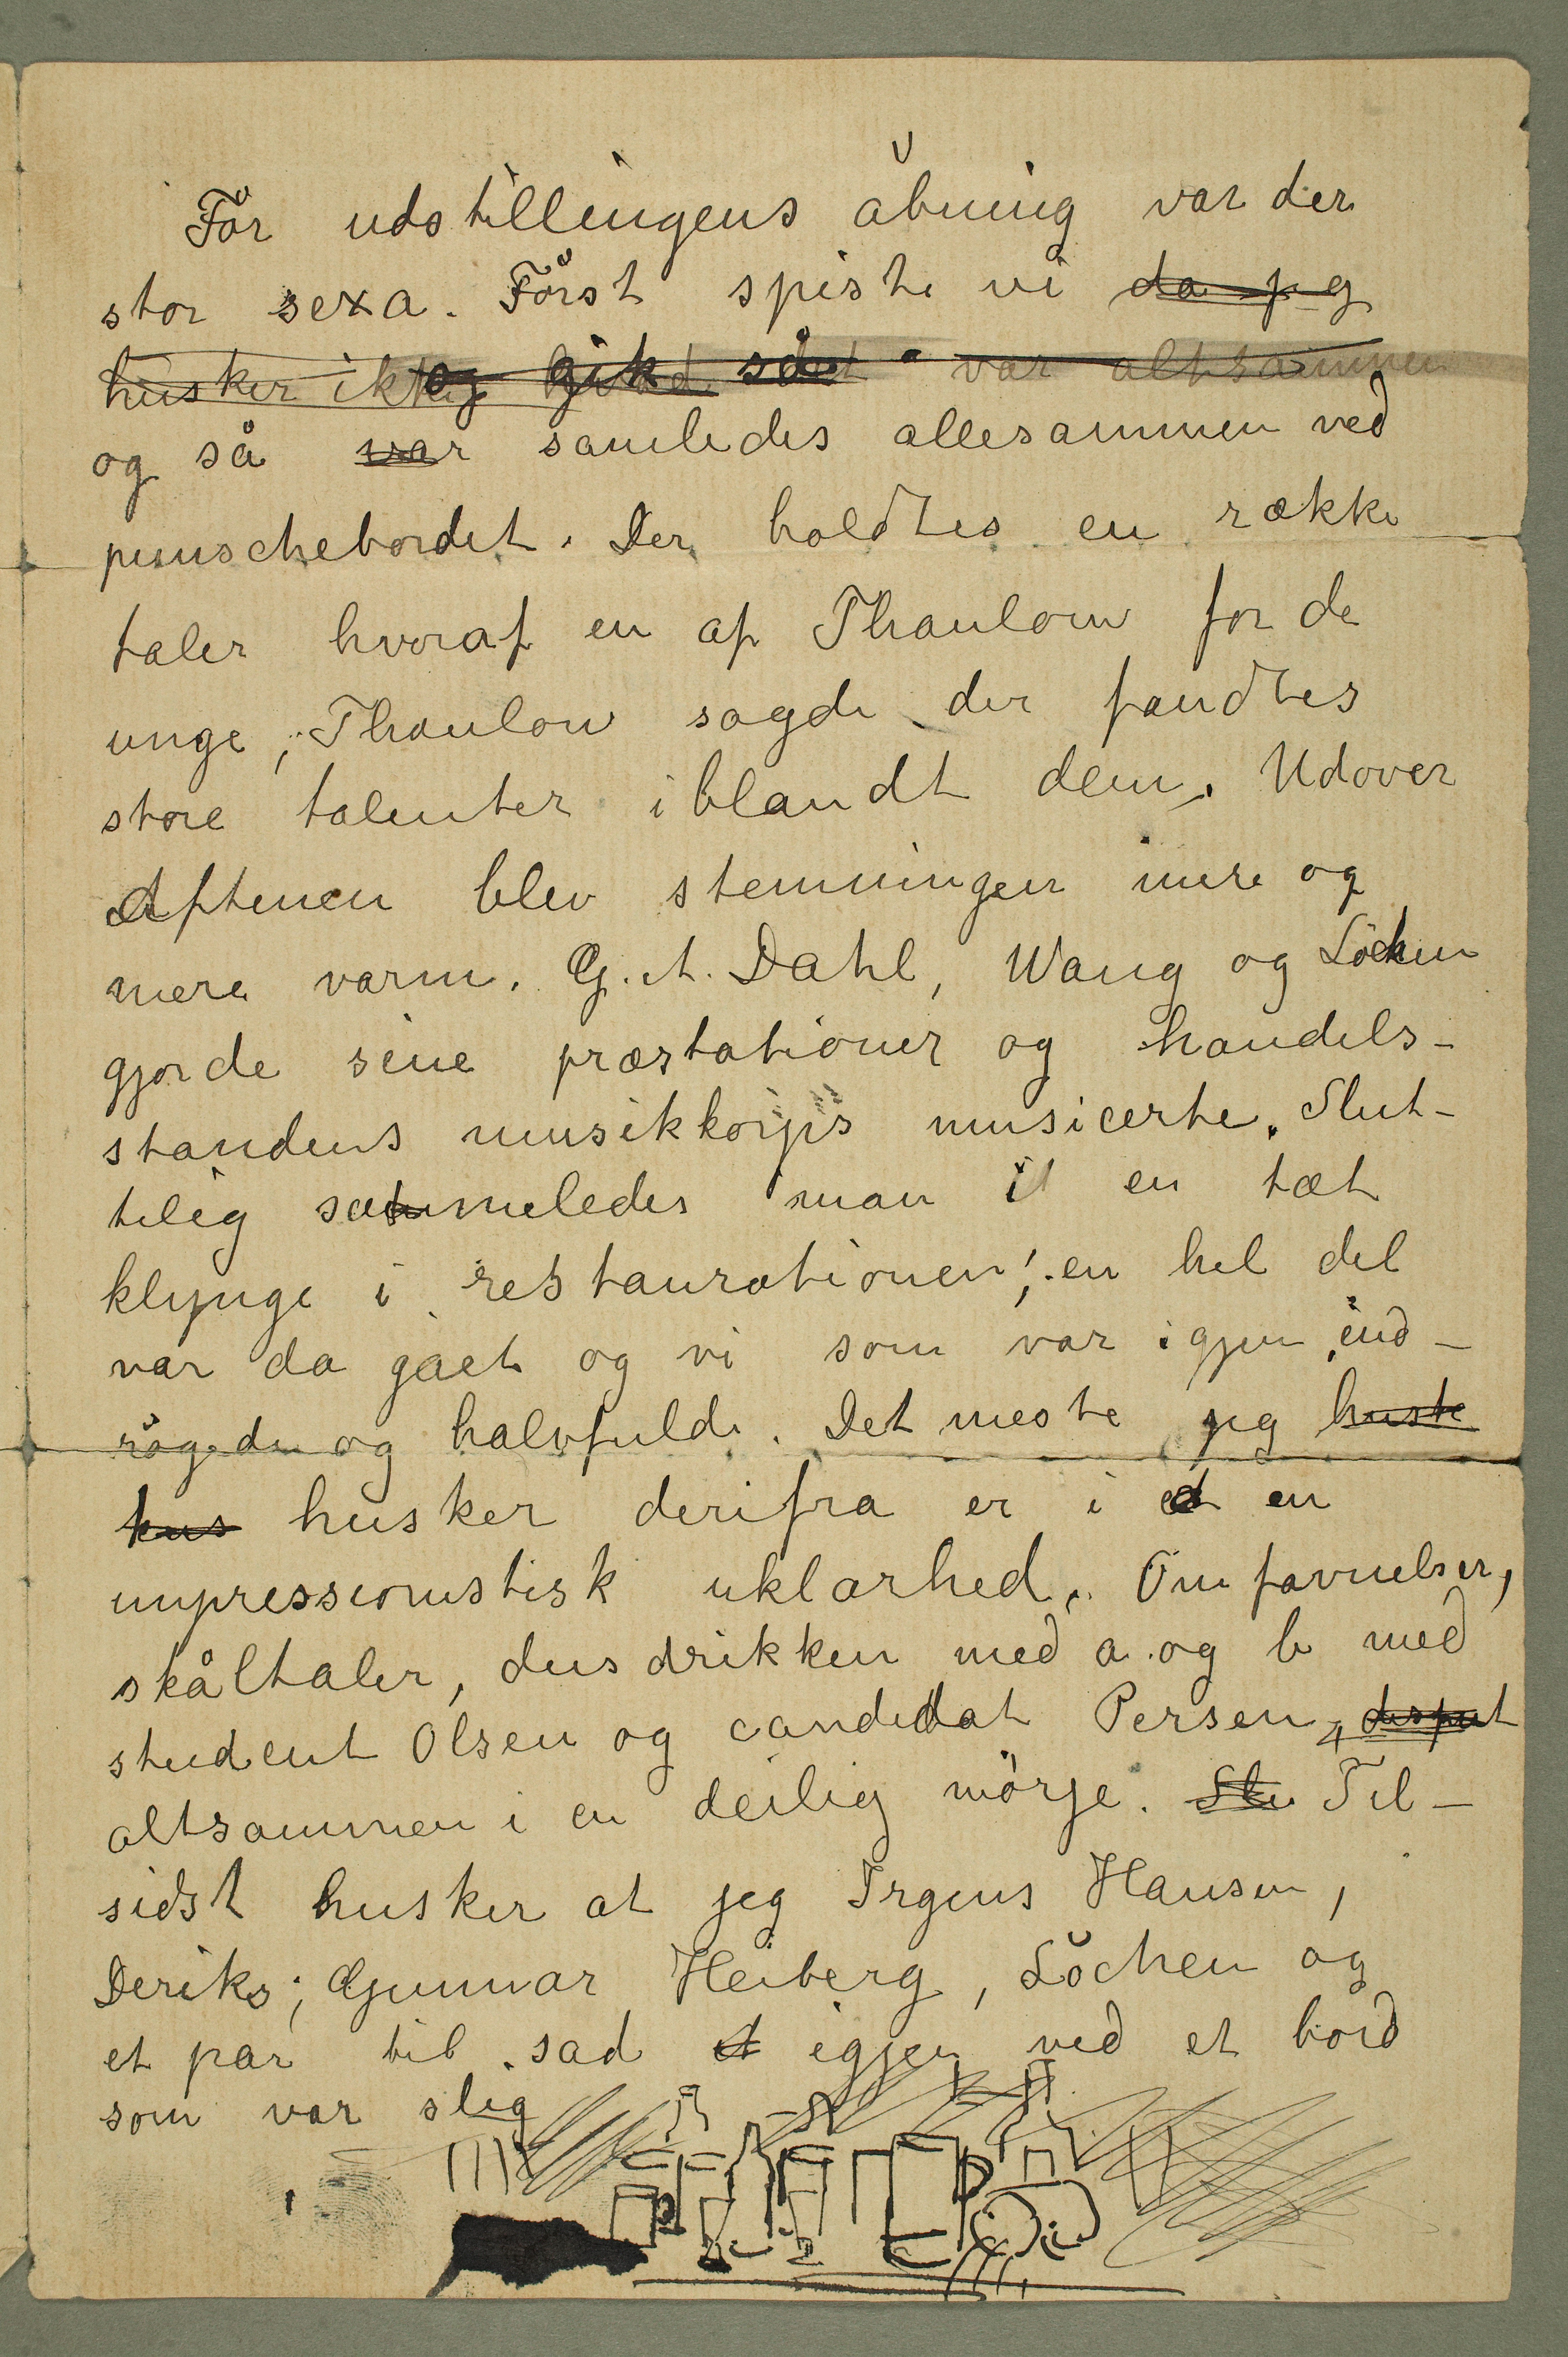 För udstillingens åbning var der
stor sexa. Först spiste vi da jeg
husker ikke og gik så det var altsammen
og så var samledes allesammen ved
punschebordet. Der holdtes en række
taler hvoraf en af Thaulow for de
unge; Thaulow sagde der fandtes
store talenter iblandt dem. Udover
Aftenen blev stemningen mere og
mere varm. G. A. Dahl, Wang og Löchen
gjorde sine præstationer og handels-
standens musikkorps musicerte. Slut-
telig sammeledes man i en tæt
klynge i restaurationen; en hel del
var da gået og vi som var igjen ind-
rögede og halvfulde. Det meste jeg huste
hus husker derifra er i et en
impressionistisk uklarhed. Omfavnelser,
skåltaler, dusdrikken med a og b med
student Olsen og candidat Persen, disput
altsammen i en deilig mörje. Slu Til-
sidst husker at jeg Irgens Hansen,
Deriks; Gunnar Heiberg, Löchen og
et par til sad et igjen ved et bord
som var slig